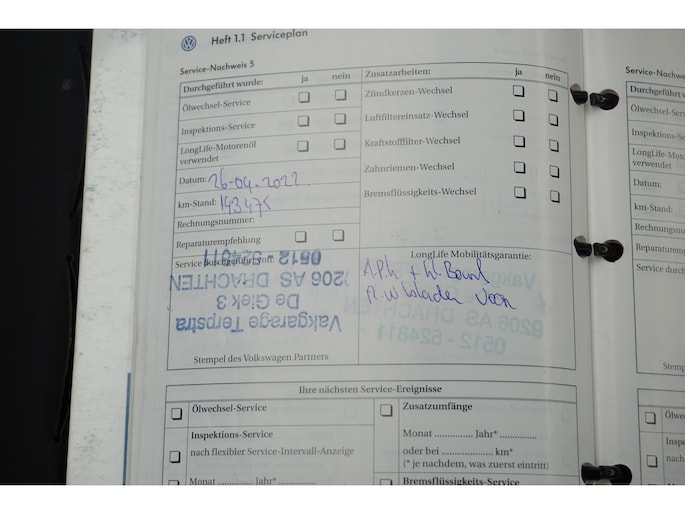 Heft 1.1 Serviceplan
Service-Nachweis 5
Durchgeführt wurde: ja nein Zusatzarbeiten: ja nein
Ölwechsel-Service Zündkerzen-Wechsel
Inspektions-Service Luftfiltereinsatz-Wechsel
LongLife-Motorenöl verwendet Kraftstofffilter-Wechsel
Datum: 26-04-2022 Zahnriemen-Wechsel
km-Stand: 143475 Bremsflüssigkeits-Wechsel
Rechnungsnummer:
Reparaturempfehlung
Service durchgeführt von: LongLife Mobilitätsgarantie:
Vakgarage Terpstra
De Giek 3
9206 AS DRACHTEN
0512 - 524811
A.P.k
R.W bladen Voor
Stempel des Volkswagen Partners
Ihre nächsten Service-Ereignisse
Ölwechsel-Service Zusatzumfänge
Inspektions-Service
nach flexibler Service-Intervall-Anzeige
Monat .............. Jahr* ..............
oder bei ................... km*
(* je nachdem, was zuerst eintritt)
Monat .............. Jahr* ..............
Bremsflüssigkeits-Service
Service-Nachwe
Durchgeführt w
Ölwechsel-Servi
Inspektions-Serv
LongLife-Motor
verwendet
Datum:
km-Stand:
Rechnungsnum
Reparaturempf
Service durch
Stemp
Ölwec
Inspe
nach
Mona